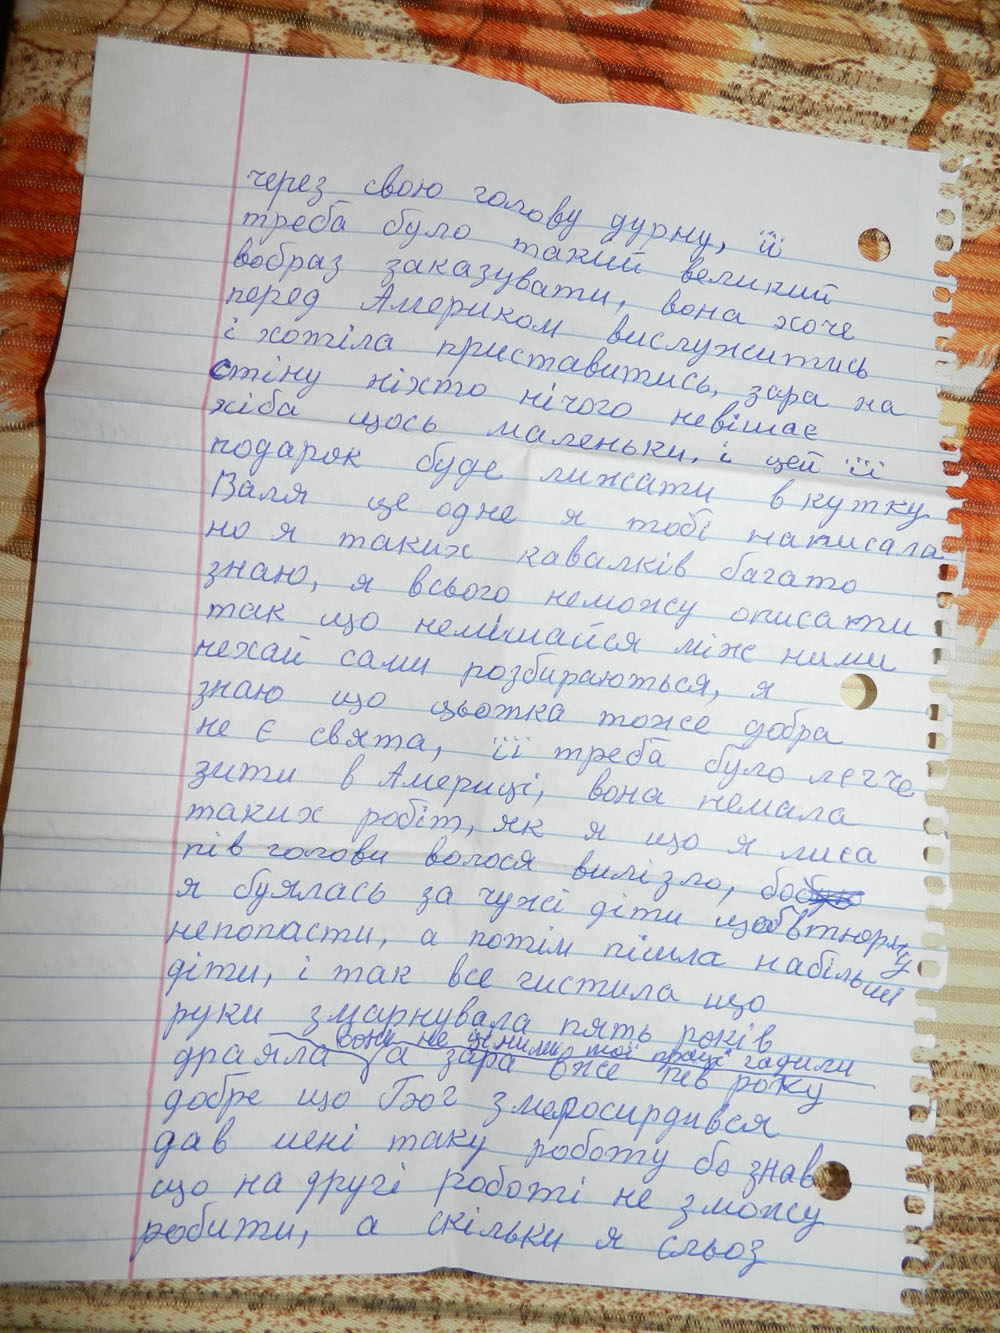 через свою голову дурну, її
треба було такий великий
вобраз заказувати, вона хоче
перед Америком вислужитись
і хотіла приставитись, зара на
стіну ніхто нічого невішає
хіба щось маленьки, і цей її
подарок буде лижати в кутку
Валя це одне я тобі написала
но я таких кавалків багато
знаю, я всього неможу описати
так що немішайся між ними
нехай сами розбираються, я
знаю що цьотка тоже добра
не є свята, її треба було легче
зити в Америці, вона немала
таких робіт, як я що я лиса
пів голови волося вилізло, бо
я буялась за чужі діти щоб втюрму
непопасти, а потім пішла набільші
діти, і так все чистила що
руки змарнувала пять років
вони не цінили тої праці гадили
драяла а зара вже пів року
добре що Бог змеросирдився
дав мені таку роботу бо знав
що на другі роботі не зможу
робити, а скільки я сльоз